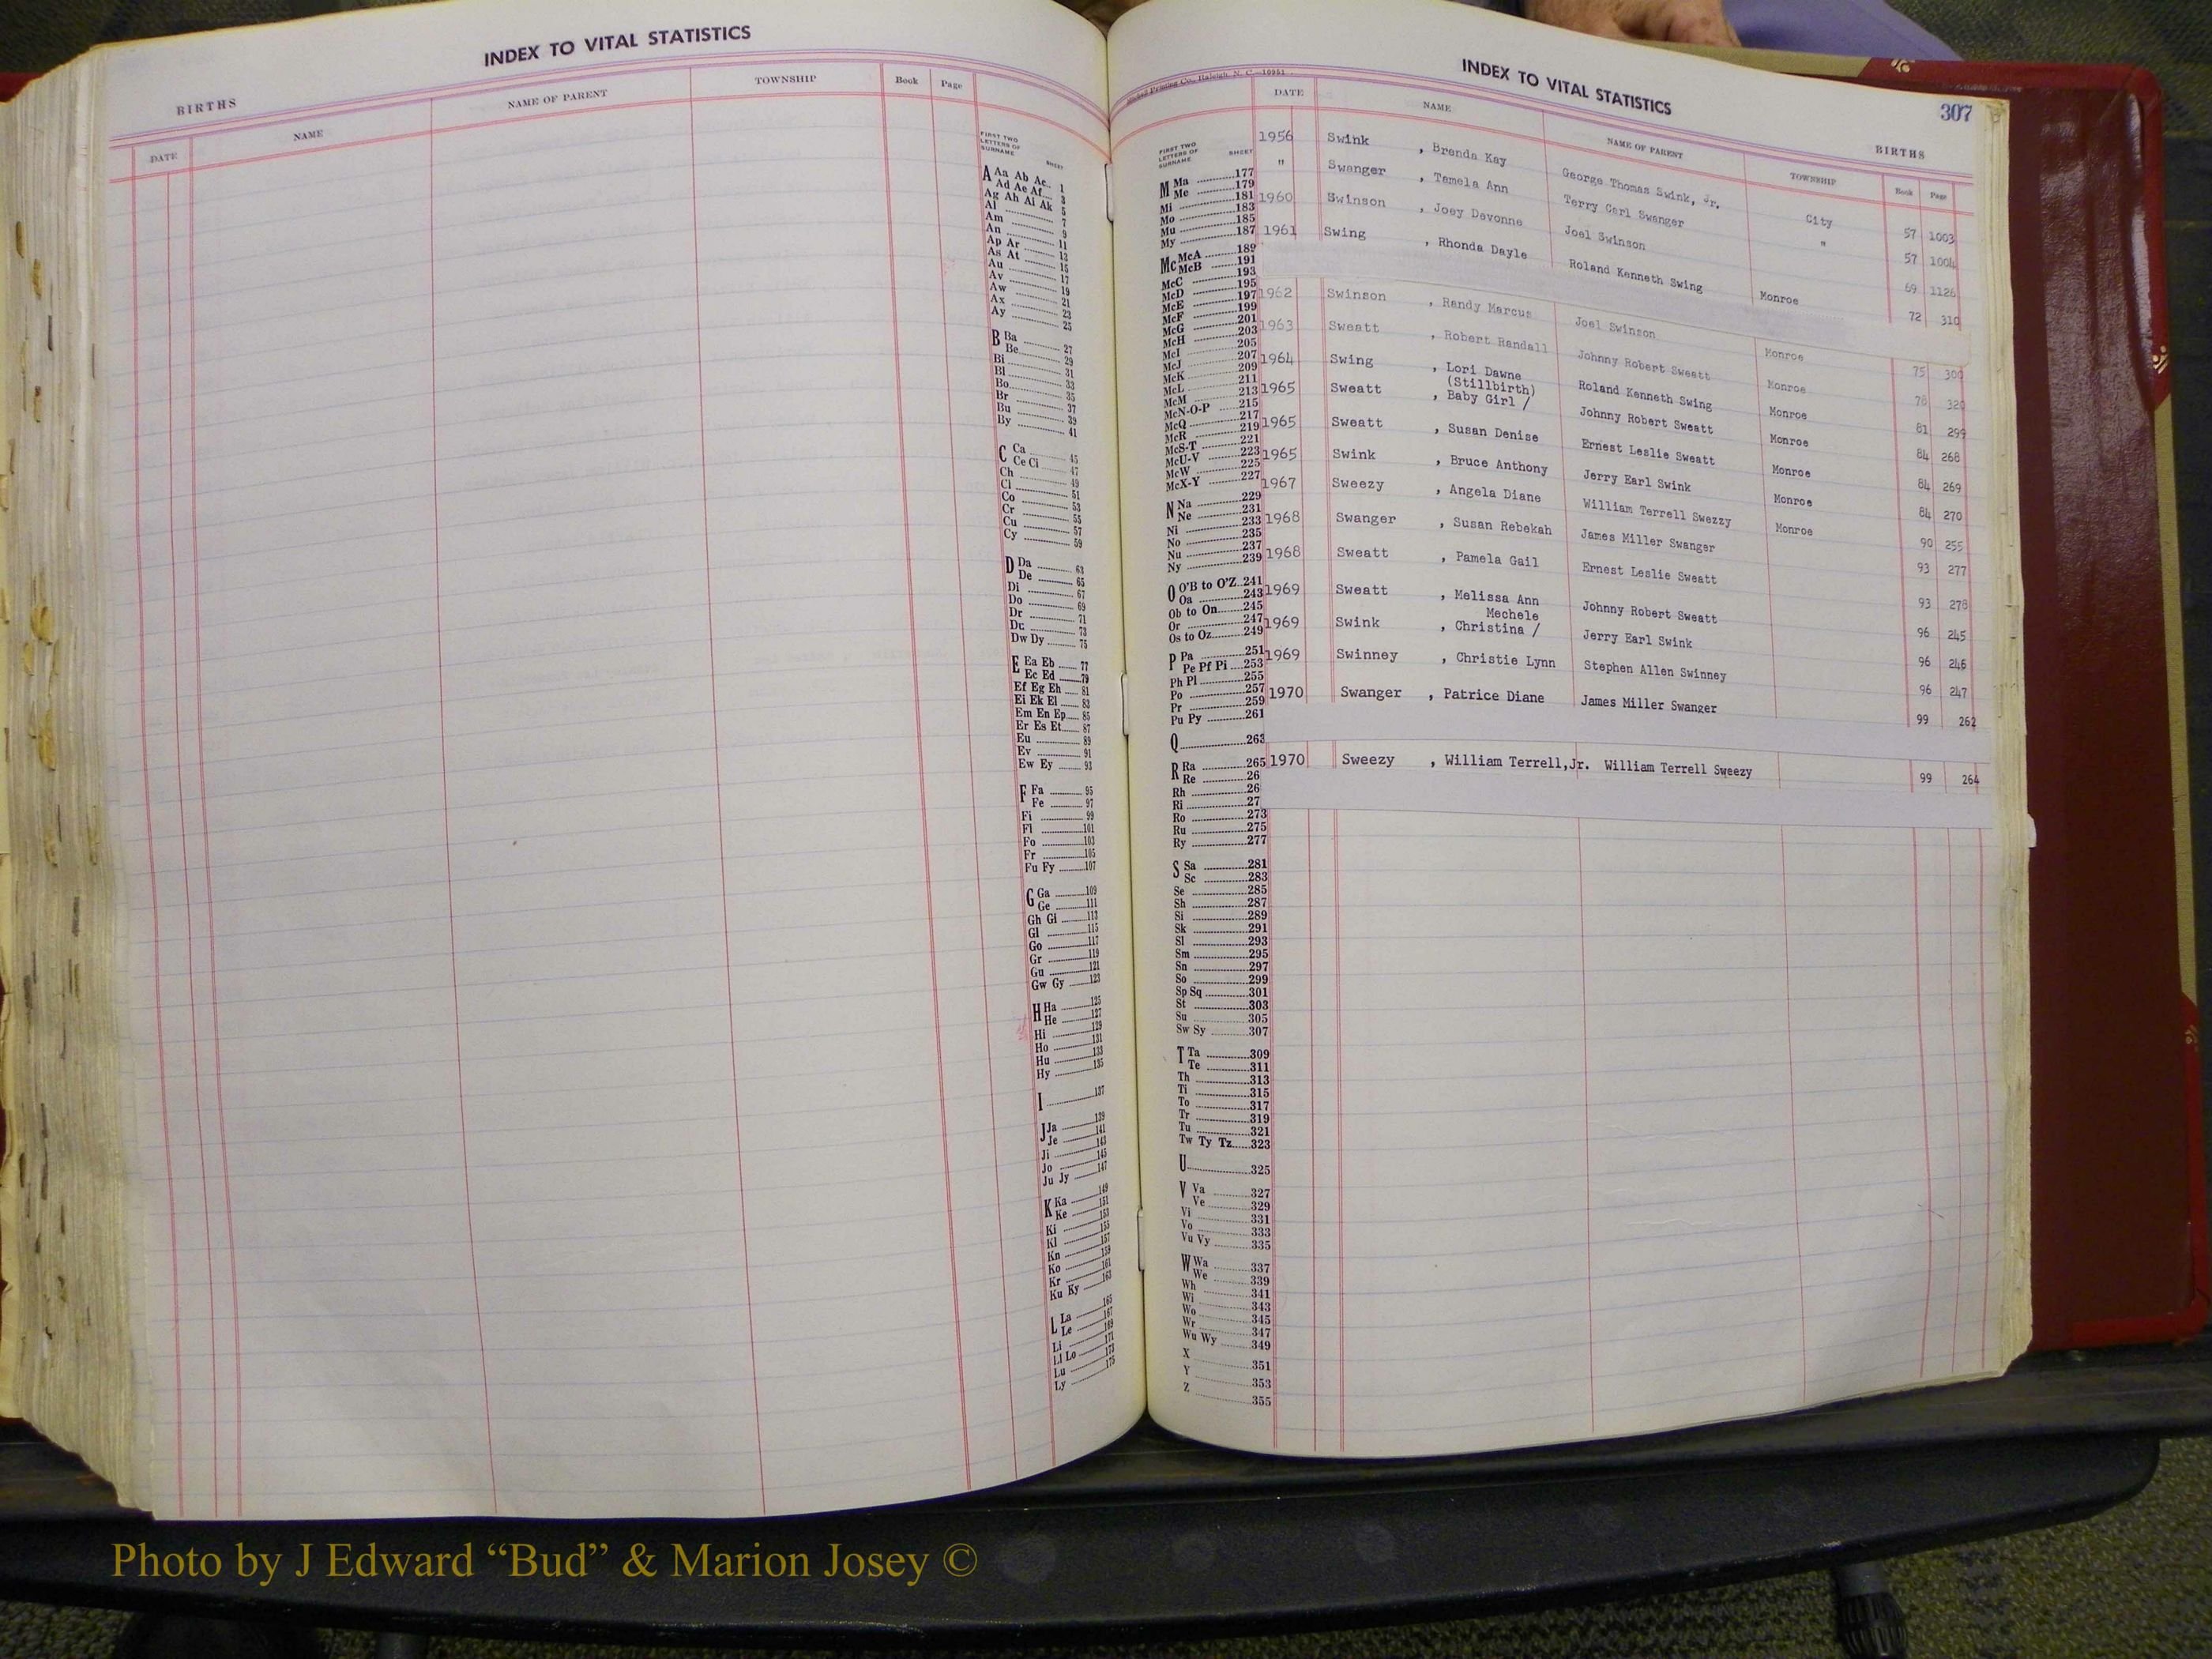 INDEX TO VITAL STATISTICS
BIRTHS
DATE NAME NAME OF PARENT TOWNSHIP Book Page
FIRST TWO
LETTERS OF
SURNAME SHEET
A Aa Ab Ac 1
Ad Ae Af 3
Ag Ah Ai Ak 5
Al 7
Am 9
An 11
Ap Ar 13
As At 15
Au 17
Av 19
Aw 21
Ax 23
Ay 25
B Ba 27
Be 29
Bi 31
Bl 33
Bo 35
Br 37
Bu 39
By 41
C Ca 45
Ce Ci 47
Ch 49
Cl 51
Co 53
Cr 55
Cu 57
Cy 59
D Da 63
De 65
Di 67
Do 69
Dr 71
Du 73
Dw Dy 75
E Ea Eb 77
Ec Ed 79
Ef Eg Eh 81
Ei Ek El 83
Em En Ep 85
Er Es Et 87
Eu 89
Ev 91
Ew Ey 93
F Fa 95
Fe 97
Fi 99
Fl 101
Fo 103
Fr 105
Fu Fy 107
G Ga 109
Ge 111
Gh Gi 113
Gl 115
Go 117
Gr 119
Gu 121
Gw Gy 123
H Ha 125
He 127
Hi 129
Ho 131
Hu 133
Hy 135
I 137
J Ja 139
Je 141
Ji 143
Jo 145
Ju Jy 147
K Ka 149
Ke 151
Ki 153
Kl 155
Kn 157
Ko 159
Kr 161
Ku Ky 163
L La 165
Le 167
Li 169
Ll Lo 171
Lu 173
Ly 175
Printing Co., Raleigh, N. C.—10951
INDEX TO VITAL STATISTICS
307
BIRTHS
DATE NAME NAME OF PARENT TOWNSHIP Book Page
FIRST TWO
LETTERS OF
SURNAME SHEET
M Ma 177
Me 179
Mi 181
Mo 183
Mu 185
My 187
Mc McA 189
McB 191
McC 193
McD 195
McE 197
McF 199
McG 201
McH 203
McI 205
McJ 207
McK 209
McL 211
McM 213
McN-O-P 215
McQ 217
McR 219
McS-T 221
McU-V 223
McW 225
McX-Y 227
N Na 229
Ne 231
Ni 233
No 235
Nu 237
Ny 239
O O'B to O'Z 241
Oa 243
Ob to On 245
Or 247
Os to Oz 249
P Pa 251
Pe Pf Pi 253
Ph Pl 255
Po 257
Pr 259
Pu Py 261
Q 263
R Ra 265
Re 26
Rh 26
Ri 27
Ro 273
Ru 275
Ry 277
S Sa 281
Sc 283
Se 285
Sh 287
Si 289
Sk 291
Sl 293
Sm 295
Sn 297
So 299
Sp Sq 301
St 303
Su 305
Sw Sy 307
T Ta 309
Te 311
Th 313
Ti 315
To 317
Tr 319
Tu 321
Tw Ty Tz 323
U 325
V Va 327
Ve 329
Vi 331
Vo 333
Vu Vy 335
W Wa 337
We 339
Wh 341
Wi 343
Wo 345
Wr 347
Wu Wy 349
X 351
Y 353
Z 355
1956 Swink , Brenda Kay George Thomas Swink, Jr. City 57 1003
" Swanger , Tamela Ann Terry Carl Swanger " 57 1004
1960 Swinson , Joey Devonne Joel Swinson 69 1126
1961 Swing , Rhonda Dayle Roland Kenneth Swing Monroe 72 310
1962 Swinson , Randy Marcus Joel Swinson Monroe 75 300
1963 Sweatt , Robert Randall Johnny Robert Sweatt Monroe 78 320
1964 Swing , Lori Dawne Roland Kenneth Swing Monroe 81 299
(Stillbirth)
1965 Sweatt , Baby Girl / Johnny Robert Sweatt Monroe 84 268
1965 Sweatt , Susan Denise Ernest Leslie Sweatt Monroe 84 269
1965 Swink , Bruce Anthony Jerry Earl Swink Monroe 84 270
1967 Sweezy , Angela Diane William Terrell Swezzy Monroe 90 255
1968 Swanger , Susan Rebekah James Miller Swanger 93 277
1968 Sweatt , Pamela Gail Ernest Leslie Sweatt 93 278
1969 Sweatt , Melissa Ann Johnny Robert Sweatt 96 245
Mechele
1969 Swink , Christina / Jerry Earl Swink 96 246
1969 Swinney , Christie Lynn Stephen Allen Swinney 96 247
1970 Swanger , Patrice Diane James Miller Swanger 99 262
1970 Sweezy , William Terrell,Jr. William Terrell Sweezy 99 264
Photo by J Edward “Bud” & Marion Josey ©